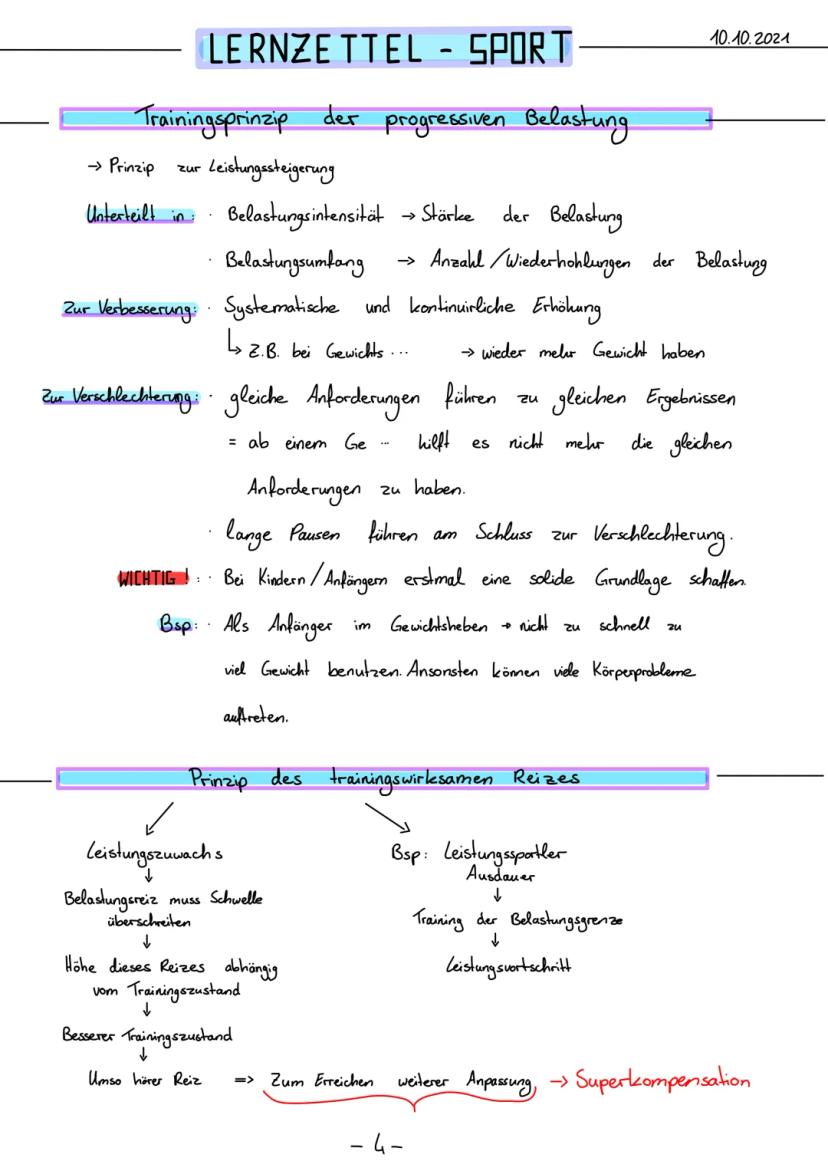 LERNZETTEL - SPORT
10.10.2021
Trainingsprinzip der progressiven Belastung
→ Prinzip zur Leistungssteigerung
Unterteilt in: · Belastungsintensität → Stärke der Belastung
· Belastungsumfang → Anzahl/Wiederhohlungen der Belastung
Zur Verbesserung: · Systematische und kontinuirliche Erhöhung
↳ Z.B. bei Gewichts ... → wieder mehr Gewicht haben
Zur Verschlechterung: · gleiche Anforderungen führen zu gleichen Ergebnissen
= ab einem Ge ... hilft es nicht mehr die gleichen
Anforderungen zu haben.
· lange Pausen führen am Schluss zur Verschlechterung.
WICHTIG !: · Bei Kindern/Anfängern erstmal eine solide Grundlage schaffen.
Bsp: · Als Anfänger im Gewichtsheben → nicht zu schnell zu
viel Gewicht benutzen. Ansonsten können viele Körperprobleme
auftreten.
Prinzip des trainingswirksamen Reizes
Leistungszuwachs
↓
Belastungsreiz muss Schwelle
überschreiten
↓
Höhe dieses Reizes abhängig
vom Trainingszustand
↓
Besserer Trainingszustand
↓
Umso hörer Reiz => Zum Erreichen weiterer Anpassung, → Superkompensation
Bsp: Leistungssportler
Ausdauer
↓
Training der Belastungsgrenze
↓
Leistungsvortschritt
- 4 -